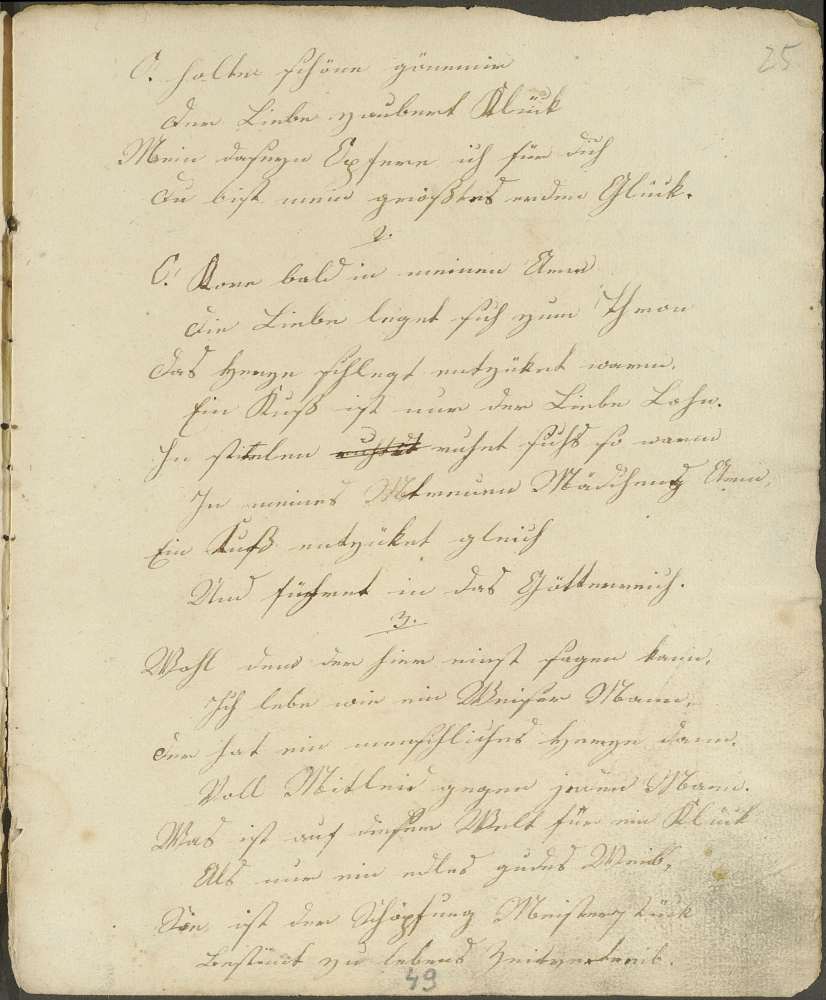 25
O. holter schöne gönnmir
der Liebe zaubert Klück
Mein daseyn Opfere ich für dich
du bist mein größtes erden Glück.
2.
O! Kom bald in meinen Arm
die Liebe leget sich zum Thron
das Herze schlegt entzüket warm.
Ein Kuß ist nur der Liebe Lohn.
In ruhet sichs so warm
In meines treuen Mädchens Arm,
Ein Kuß entzüket gleich
Und führet in das Götterreich.
3.
Wohl dem der hier einst sagen kann,
Ich lebe wie ein Weiser Mann,
der hat ein menschliches Herze dann.
Voll Mitleid gegen jeden Mann.
Was ist auf dieser Welt für ein Klück
Als nur ein edles gudes Weib,
Sie ist der Schöpfung Meisterstück
bestimt zu lebens Zeitvertreib.
49